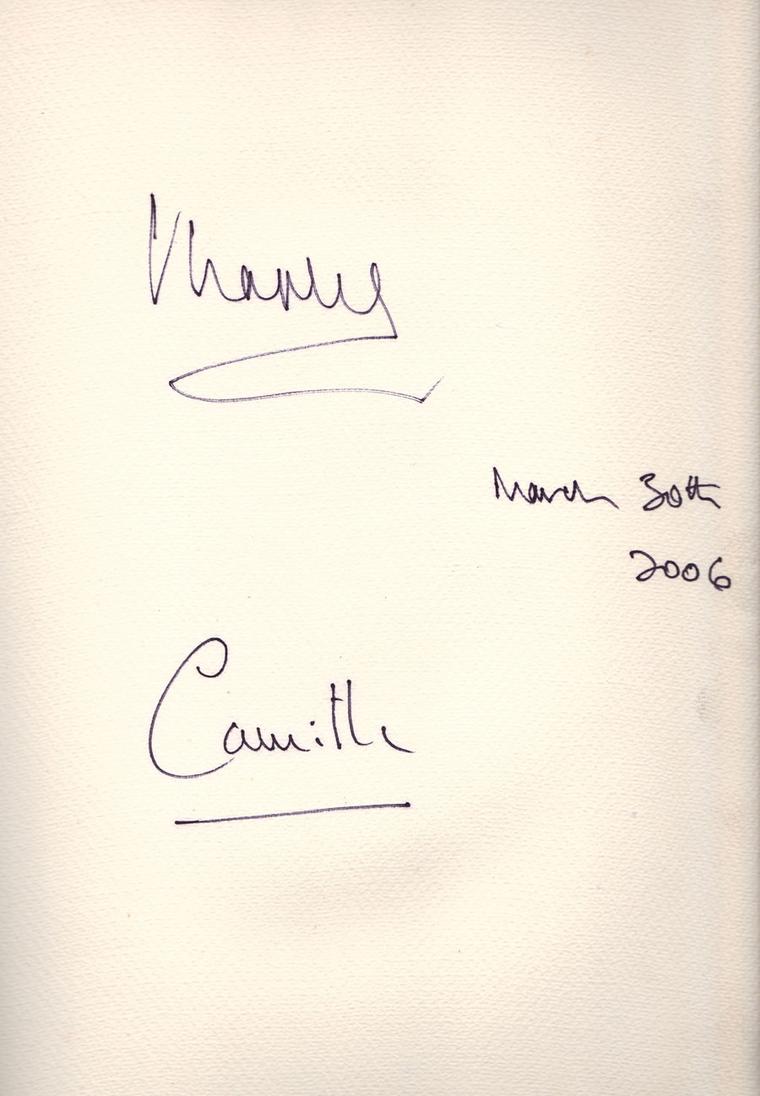 Charles
March 30th
2006
Camilla